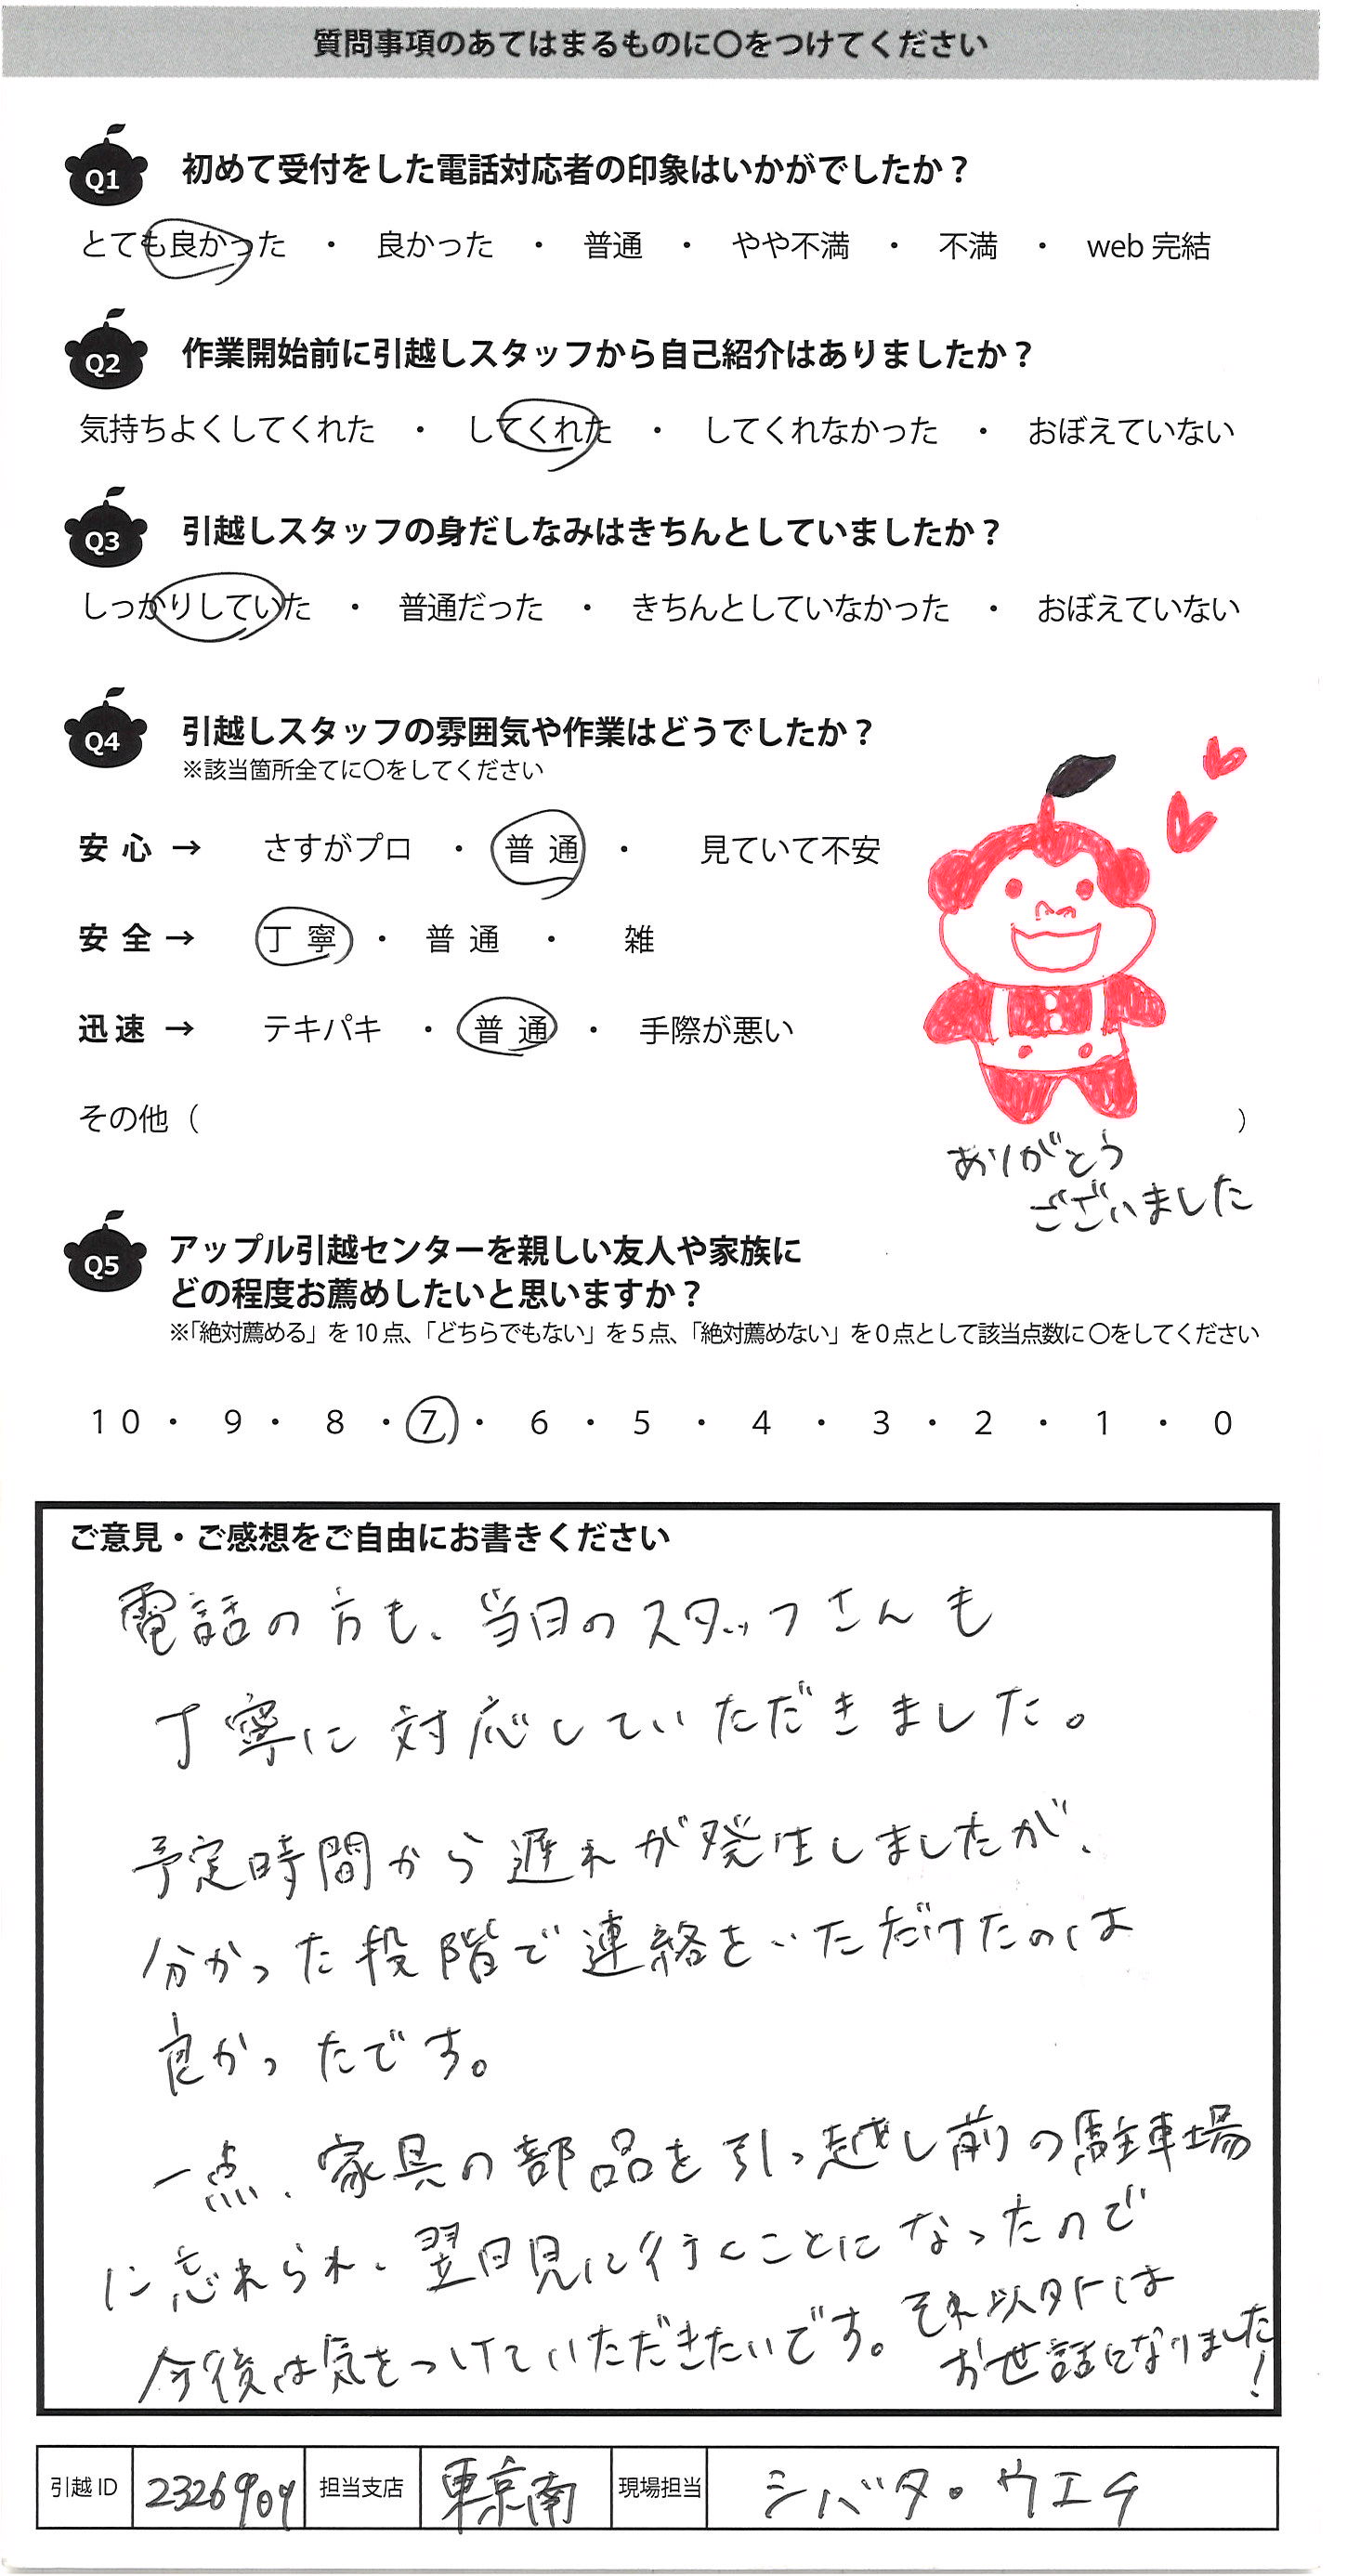 質問事項のあてはまるものに〇をつけてください
Q1 初めて受付をした電話対応者の印象はいかがでしたか？
とても良かった ・ 良かった ・ 普通 ・ やや不満 ・ 不満 ・ web 完結
Q2 作業開始前に引越しスタッフから自己紹介はありましたか？
気持ちよくしてくれた ・ してくれた ・ してくれなかった ・ おぼえていない
Q3 引越しスタッフの身だしなみはきちんとしていましたか？
しっかりしていた ・ 普通だった ・ きちんとしていなかった ・ おぼえていない
Q4 引越しスタッフの雰囲気や作業はどうでしたか？
※該当箇所全てに〇をしてください
安 心 → さすがプロ ・ 普 通 ・ 見ていて不安
安 全 → 丁 寧 ・ 普 通 ・ 雑
迅 速 → テキパキ ・ 普 通 ・ 手際が悪い
その他（ ）
ありがとう
ございました
Q5 アップル引越センターを親しい友人や家族に
どの程度お薦めしたいと思いますか？
※「絶対薦める」を 10 点、「どちらでもない」を 5 点、「絶対薦めない」を 0 点として該当点数に 〇をしてください
10 ・ 9 ・ 8 ・ 7 ・ 6 ・ 5 ・ 4 ・ 3 ・ 2 ・ 1 ・ 0
ご意見・ご感想をご自由にお書きください
電話の方も、当日のスタッフさんも
丁寧に対応していただきました。
予定時間から遅れが発生しましたが、
分かった段階で連絡をいただけたのは
良かったです。
一点、家具の部品を引っ越し前の駐車場
に忘れられ、翌日見に行くことになったので
今後は気をつけていただきたいです。それ以外には
お世話になりました！
引越 ID 2326909 担当支店 東京南 現場担当 シバタ・ウエチ